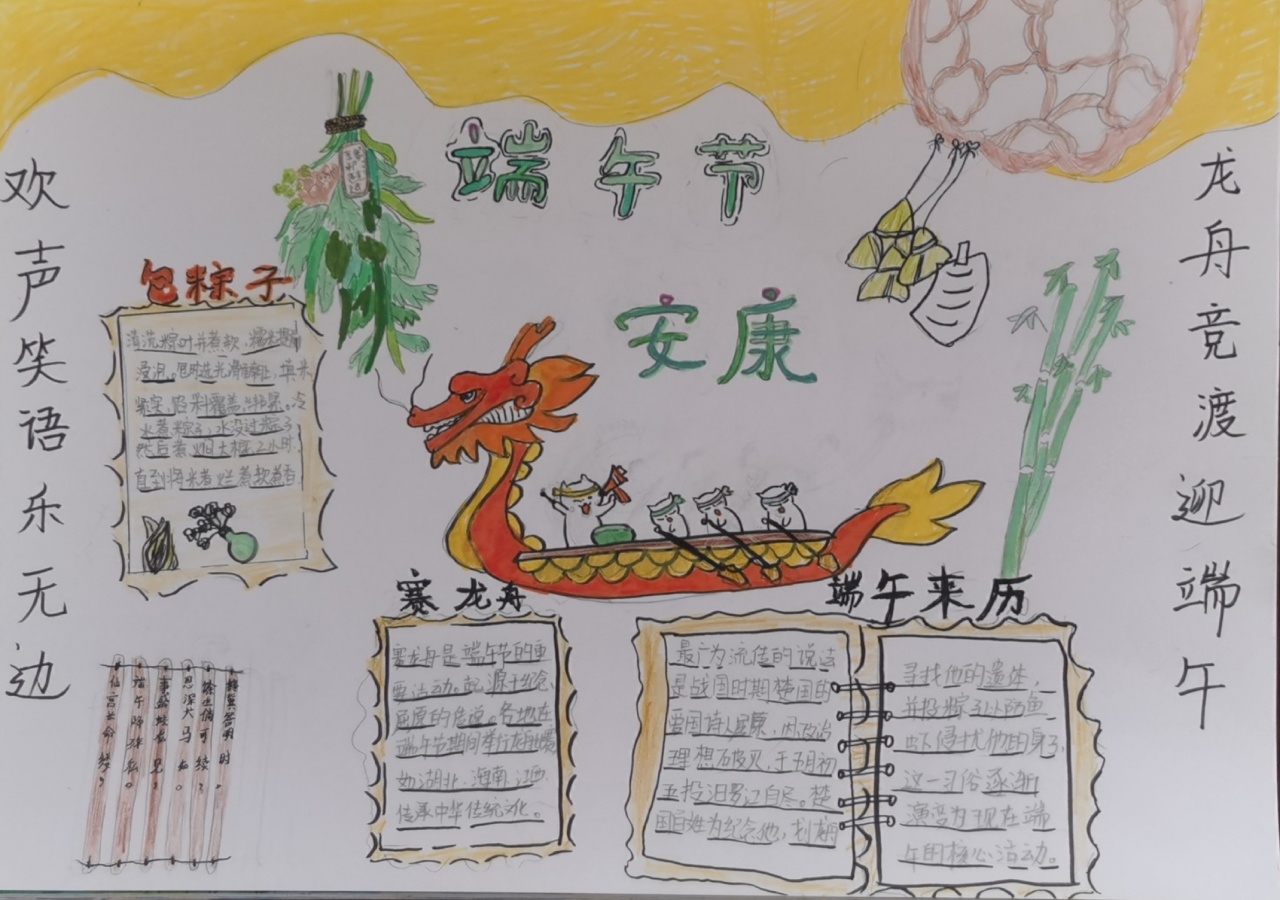 端午节
安康
欢声笑语乐无边
龙舟竞渡迎端午
包粽子
清洗粽叶并煮软，糯米提前
浸泡。包时选光滑面朝上，填米
紧实，馅料覆盖，
水煮粽子，水没过粽子
然后煮 2小时，
直到将米煮烂煮软煮香
赛龙舟
赛龙舟是端午节的重
要活动。起源于纪念
屈原的传说。各地在
端午节期间举行龙舟赛
如湖北、海南、江西
传承中华传统文化。
端午来历
最广为流传的说法
是战国时期楚国的
爱国诗人屈原，因政治
理想破灭，于五月初
五投汨罗江自尽。楚
国百姓为纪念他，划船
寻找他的遗体，
并投粽子以防鱼
虾侵扰他的身子，
这一习俗逐渐
演变为现在端
午的核心活动。